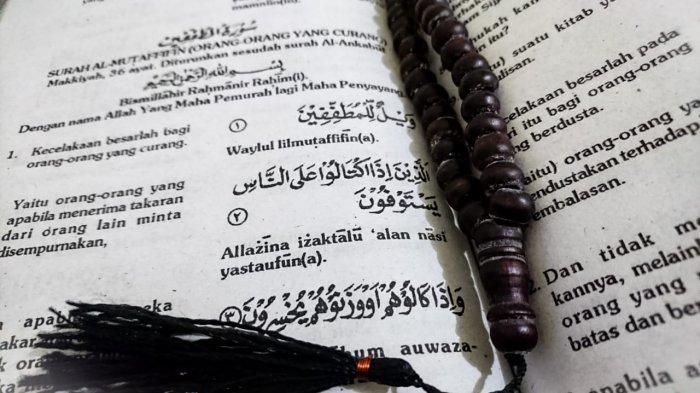 سُوْرَةُ الْمُطَفِّفِيْنَ
SURAH AL-MUṬAFFIFĪN (ORANG-ORANG YANG CURANG)
Makkiyah, 36 ayat. Diturunkan sesudah surah Al-Ankabūt
بِسْمِ اللهِ الرَّحْمٰنِ الرَّحِيْمِ
Bismillāhir Raḥmānir Raḥīm(i).
Dengan nama Allah Yang Maha Pemurah lagi Maha Penyayang
1. Kecelakaan besarlah bagi
orang-orang yang curang.
وَيْلٌ لِّلْمُطَفِّفِيْنَ
١
Waylul lilmuṭaffifīn(a).
Yaitu orang-orang yang
apabila menerima takaran
dari orang lain minta
disempurnakan,
الَّذِيْنَ اِذَا اكْتَالُوْا عَلَى النَّاسِ
يَسْتَوْفُوْنَ
٢
Allażīna iżaktālū ‘alan nāsi
yastaufūn(a).
وَاِذَا كَالُوْهُمْ اَوْ وَّزَنُوْهُمْ يُخْسِرُوْنَ ٣
auwaza-
suatu kitab
Kecelakaan besarlah pada
itu bagi orang-orang
berdusta.
orang-orang
dustakan terhadap
2. Dan tidak
kannya,
orang yang
batas dan
apabila